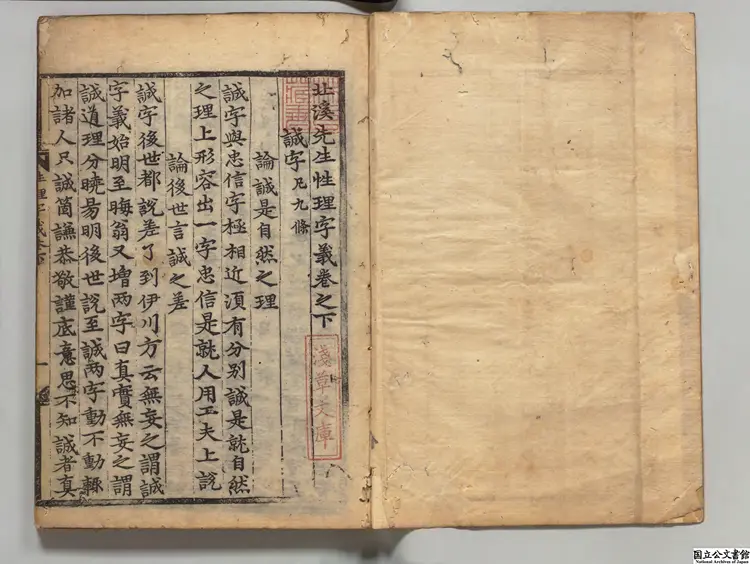 北溪先生性理字義卷之下
誠字凡九條
論誠是自然之理
誠字與忠信字極相近須有分別誠是就自然
之理上形容出一字忠信是就人用工夫上說
論後世言誠之差
誠字後世都說差了到伊川方云無妄之謂誠
字義始明至晦翁又增两字曰真實無妄之謂
誠道理分曉易明後世說至誠两字動不動輒
加諸人只誠箇謙恭敬謹底意思不知誠者真
淺草文庫
国立公文書館
National Archives of Japan